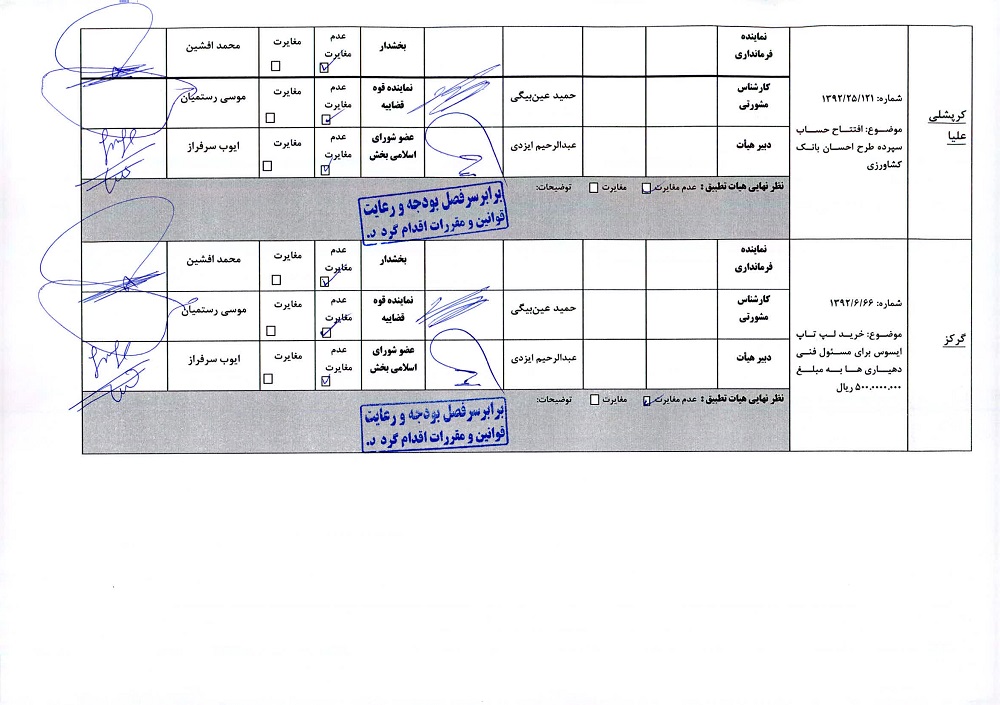 کرپشلی
علیا
شماره: ۱۳۹۲/۲۵/۱۲۱
موضوع: افتتاح حساب
سپرده طرح احسان بانک
کشاورزی
نماینده
فرمانداری
بخشدار
عدم
مغایرت
مغایرت
محمد افشین
کارشناس
مشورتی
حمید عین‌بیگی
نماینده قوه
قضاییه
عدم
مغایرت
مغایرت
موسی رستمیان
دبیر هیأت
عبدالرحیم ایزدی
عضو شورای
اسلامی بخش
عدم
مغایرت
مغایرت
ایوب سرفراز
نظر نهایی هیات تطبیق: عدم مغایرت مغایرت توضیحات:
برابر سرفصل بودجه و رعایت
قوانین و مقررات اقدام گردد.
گرکز
شماره: ۱۳۹۲/۶/۶۶
موضوع: خرید لپ تاپ
ایسوس برای مسئول فنی
دهیاری ها به مبلغ
۵۰۰.۰۰۰۰.۰۰۰ ریال
نماینده
فرمانداری
بخشدار
عدم
مغایرت
مغایرت
محمد افشین
کارشناس
مشورتی
حمید عین‌بیگی
نماینده قوه
قضاییه
عدم
مغایرت
مغایرت
موسی رستمیان
دبیر هیأت
عبدالرحیم ایزدی
عضو شورای
اسلامی بخش
عدم
مغایرت
مغایرت
ایوب سرفراز
نظر نهایی هیات تطبیق: عدم مغایرت مغایرت توضیحات:
برابر سرفصل بودجه و رعایت
قوانین و مقررات اقدام گردد.